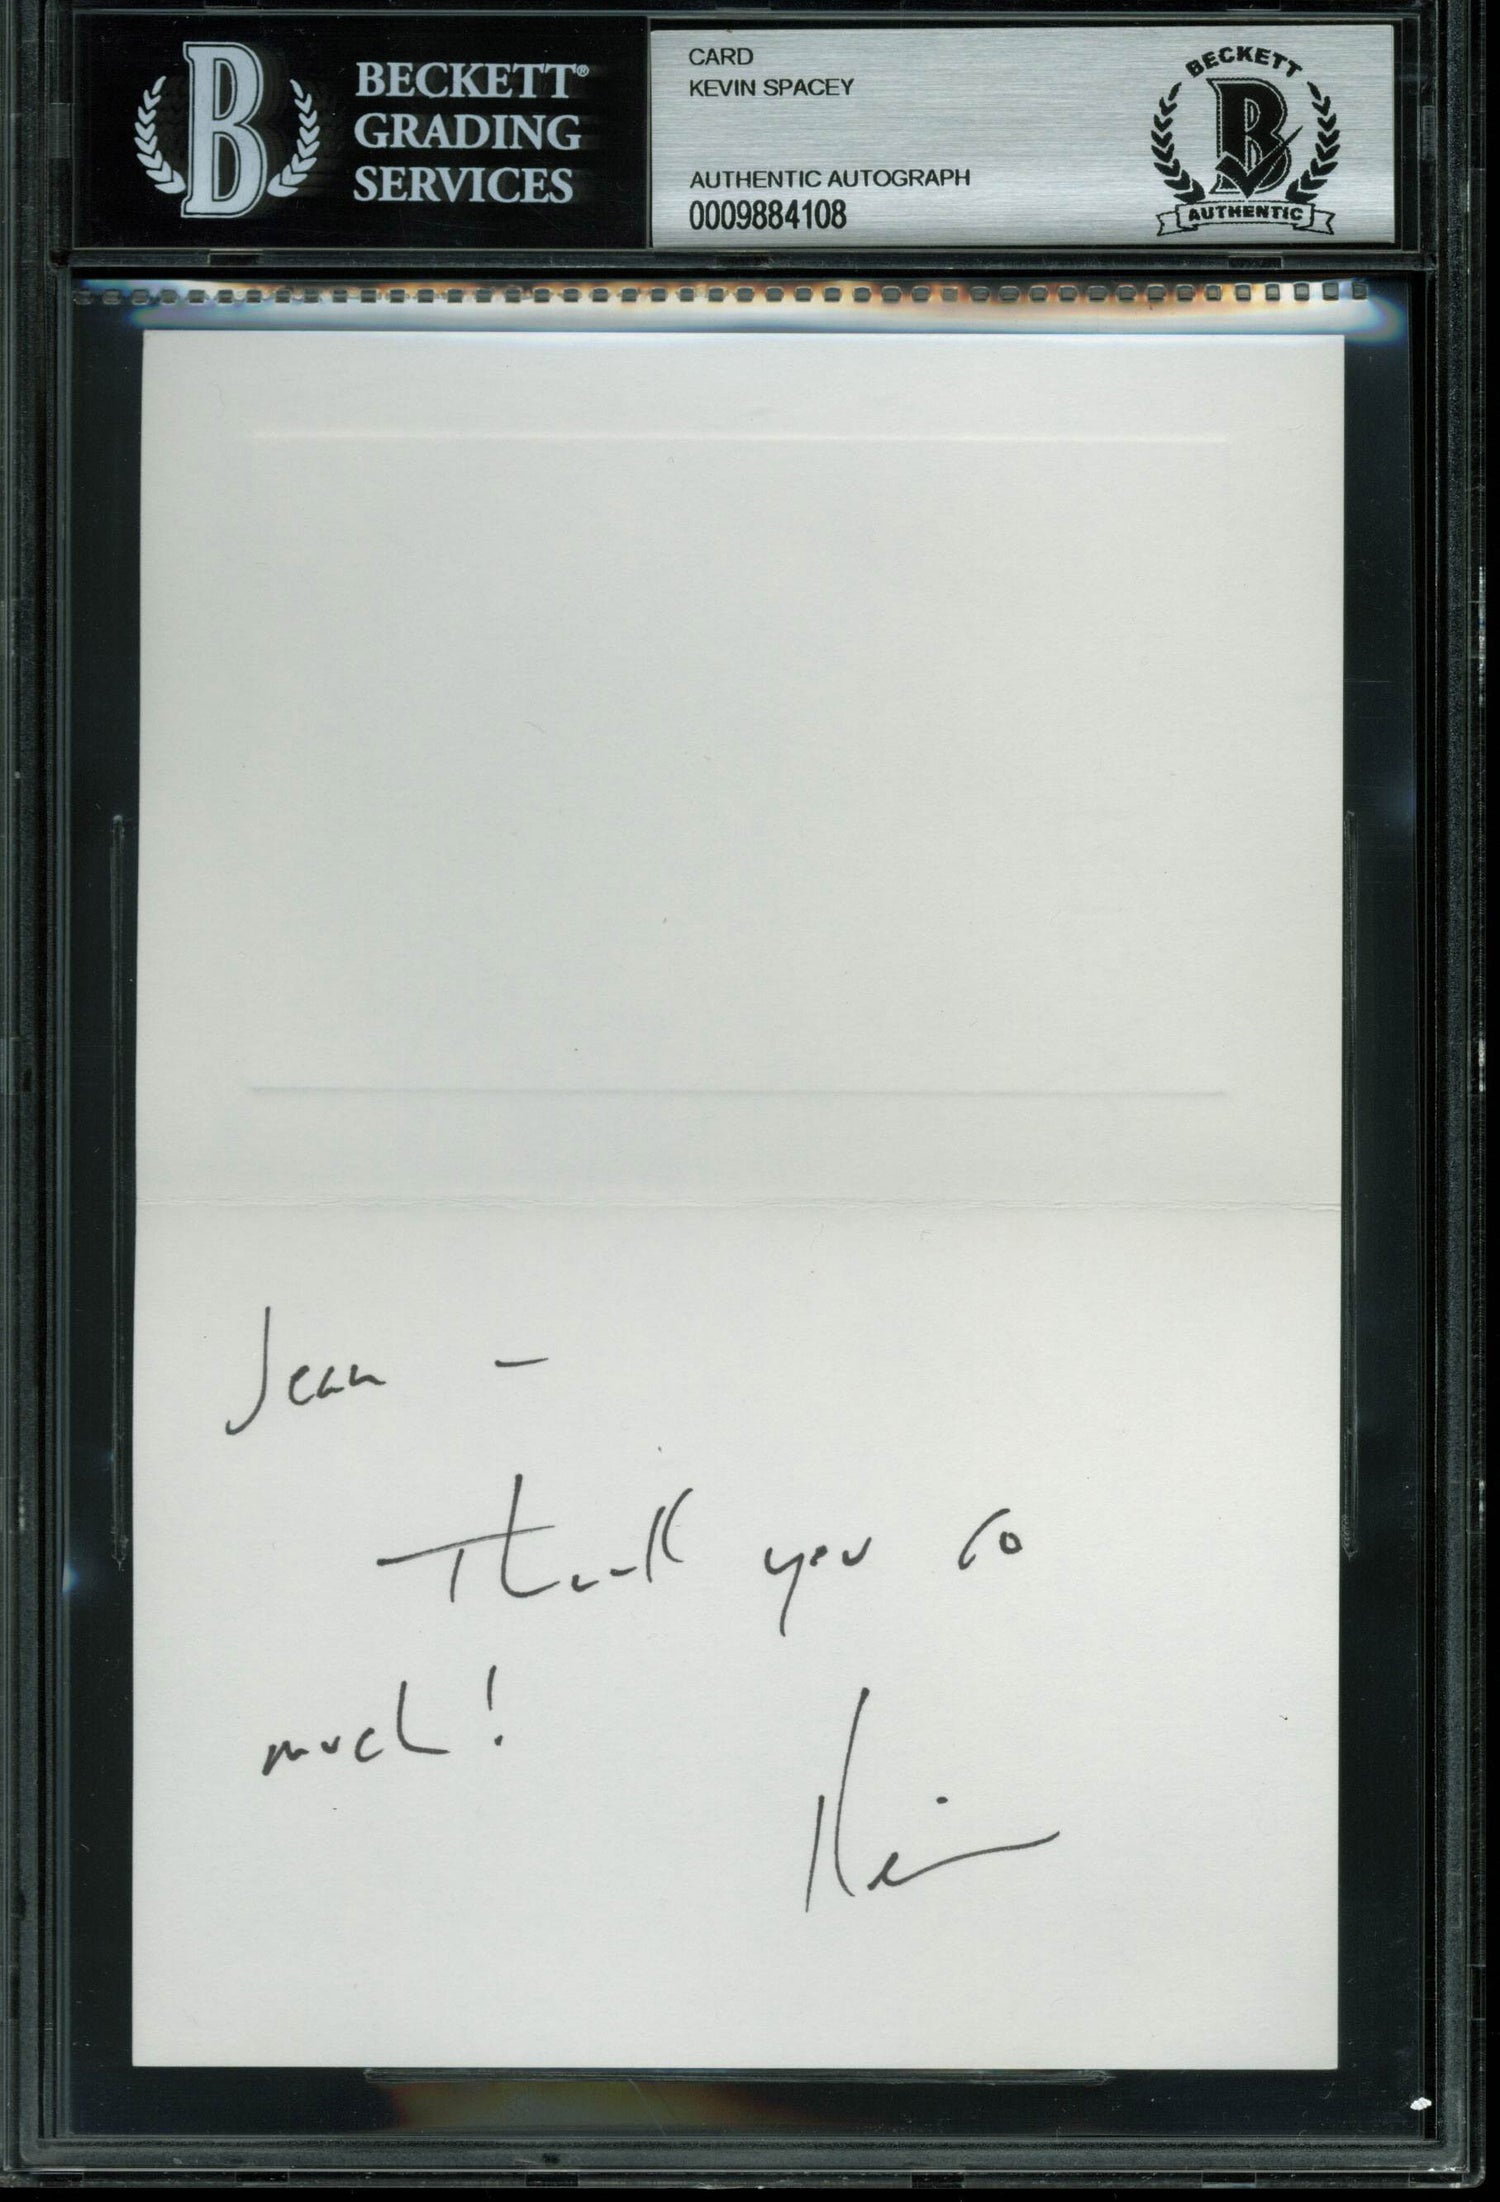 BECKETT®
GRADING
SERVICES
CARD
KEVIN SPACEY
AUTHENTIC AUTOGRAPH
0009884108
BECKETT
B
AUTHENTIC
B
Jean -
Thank you so
much!
Kevin